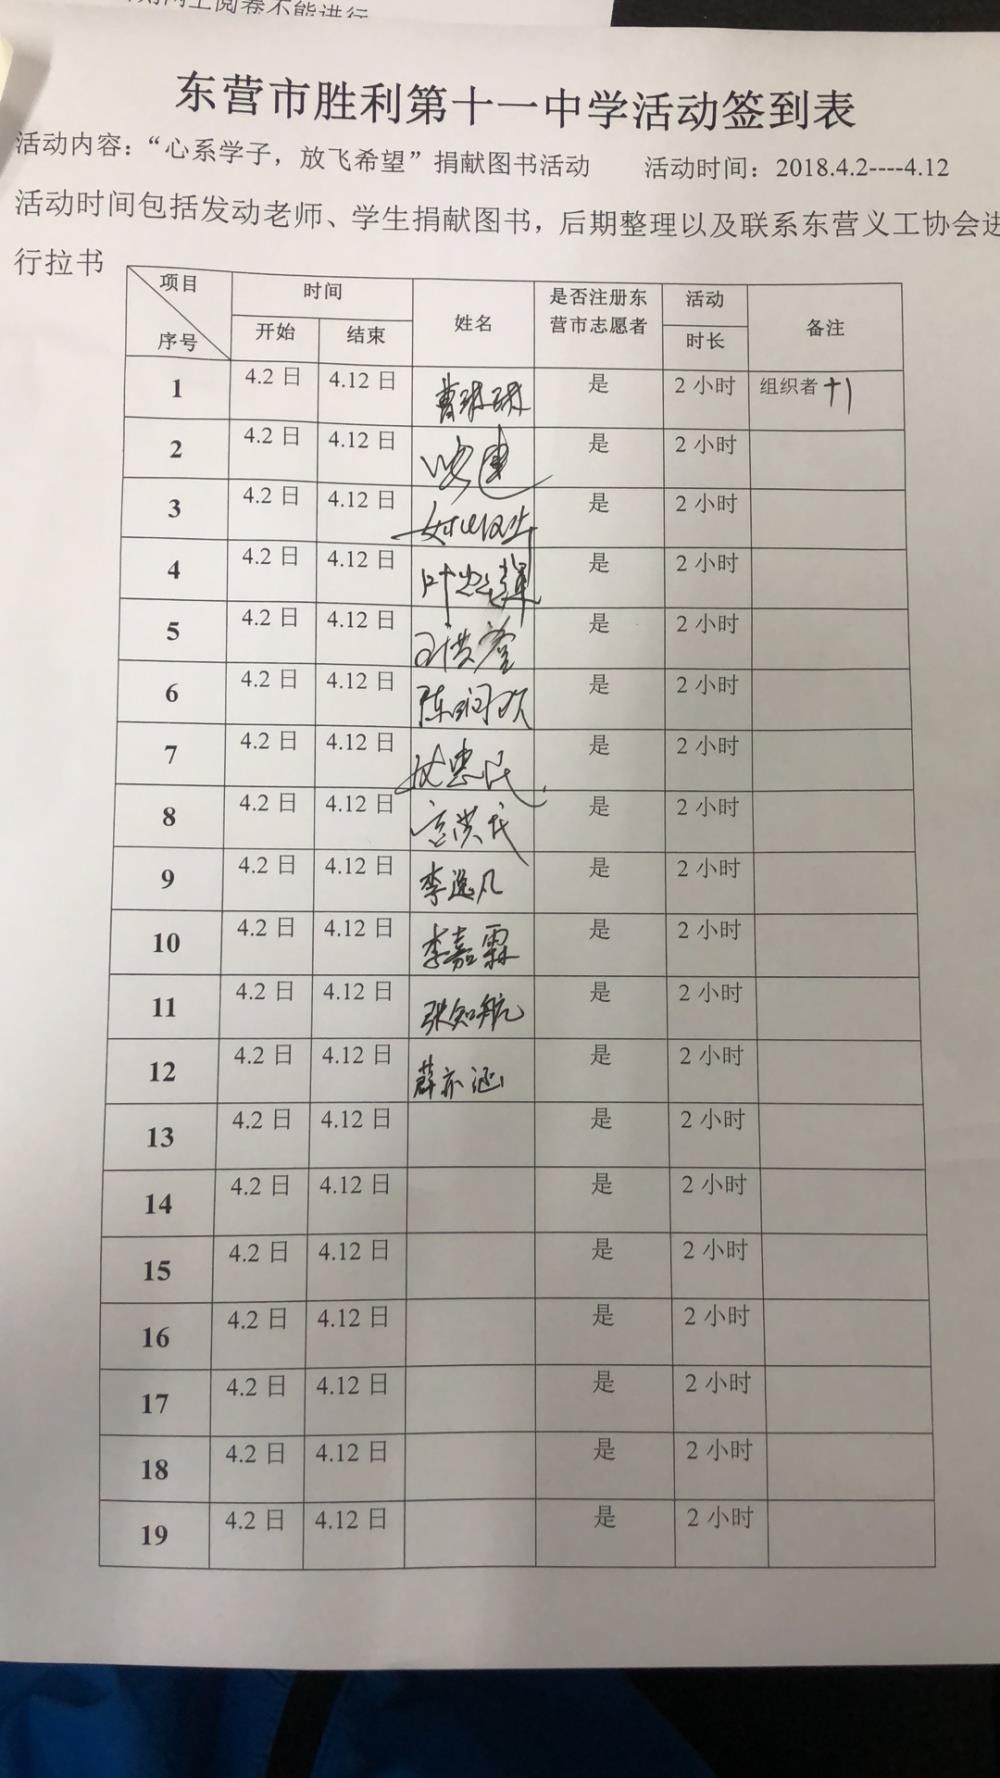 东营市胜利第十一中学活动签到表
活动内容：“心系学子，放飞希望”捐献图书活动 活动时间：2018.4.2----4.12
活动时间包括发动老师、学生捐献图书，后期整理以及联系东营义工协会进
行拉书
项目 序号 时间 姓名 是否注册东营市志愿者 活动 备注
开始 结束 时长
1 4.2 日 4.12 日 曹球球 是 2 小时 组织者 +1
2 4.2 日 4.12 日 是 2 小时
3 4.2 日 4.12 日 是 2 小时
4 4.2 日 4.12 日 是 2 小时
5 4.2 日 4.12 日 是 2 小时
6 4.2 日 4.12 日 是 2 小时
7 4.2 日 4.12 日 是 2 小时
8 4.2 日 4.12 日 是 2 小时
9 4.2 日 4.12 日 李逸凡 是 2 小时
10 4.2 日 4.12 日 李嘉霖 是 2 小时
11 4.2 日 4.12 日 张知航 是 2 小时
12 4.2 日 4.12 日 薛亦涵 是 2 小时
13 4.2 日 4.12 日 是 2 小时
14 4.2 日 4.12 日 是 2 小时
15 4.2 日 4.12 日 是 2 小时
16 4.2 日 4.12 日 是 2 小时
17 4.2 日 4.12 日 是 2 小时
18 4.2 日 4.12 日 是 2 小时
19 4.2 日 4.12 日 是 2 小时